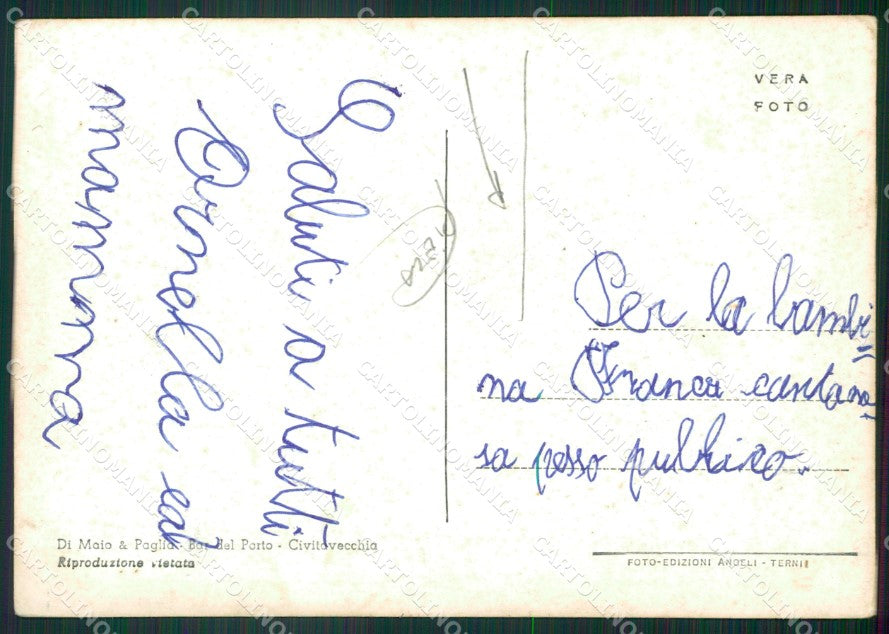 Saluti a tutti
Ornella ea
mamma
VERA
FOTO
Per la bambi=
na Franca cantana=
sa presso pubblico.
Di Maio & Paglia - Bar del Porto - Civitavecchia
Riproduzione vietata
FOTO-EDIZIONI ANGELI - TERNI
CARTOLINOMANIA